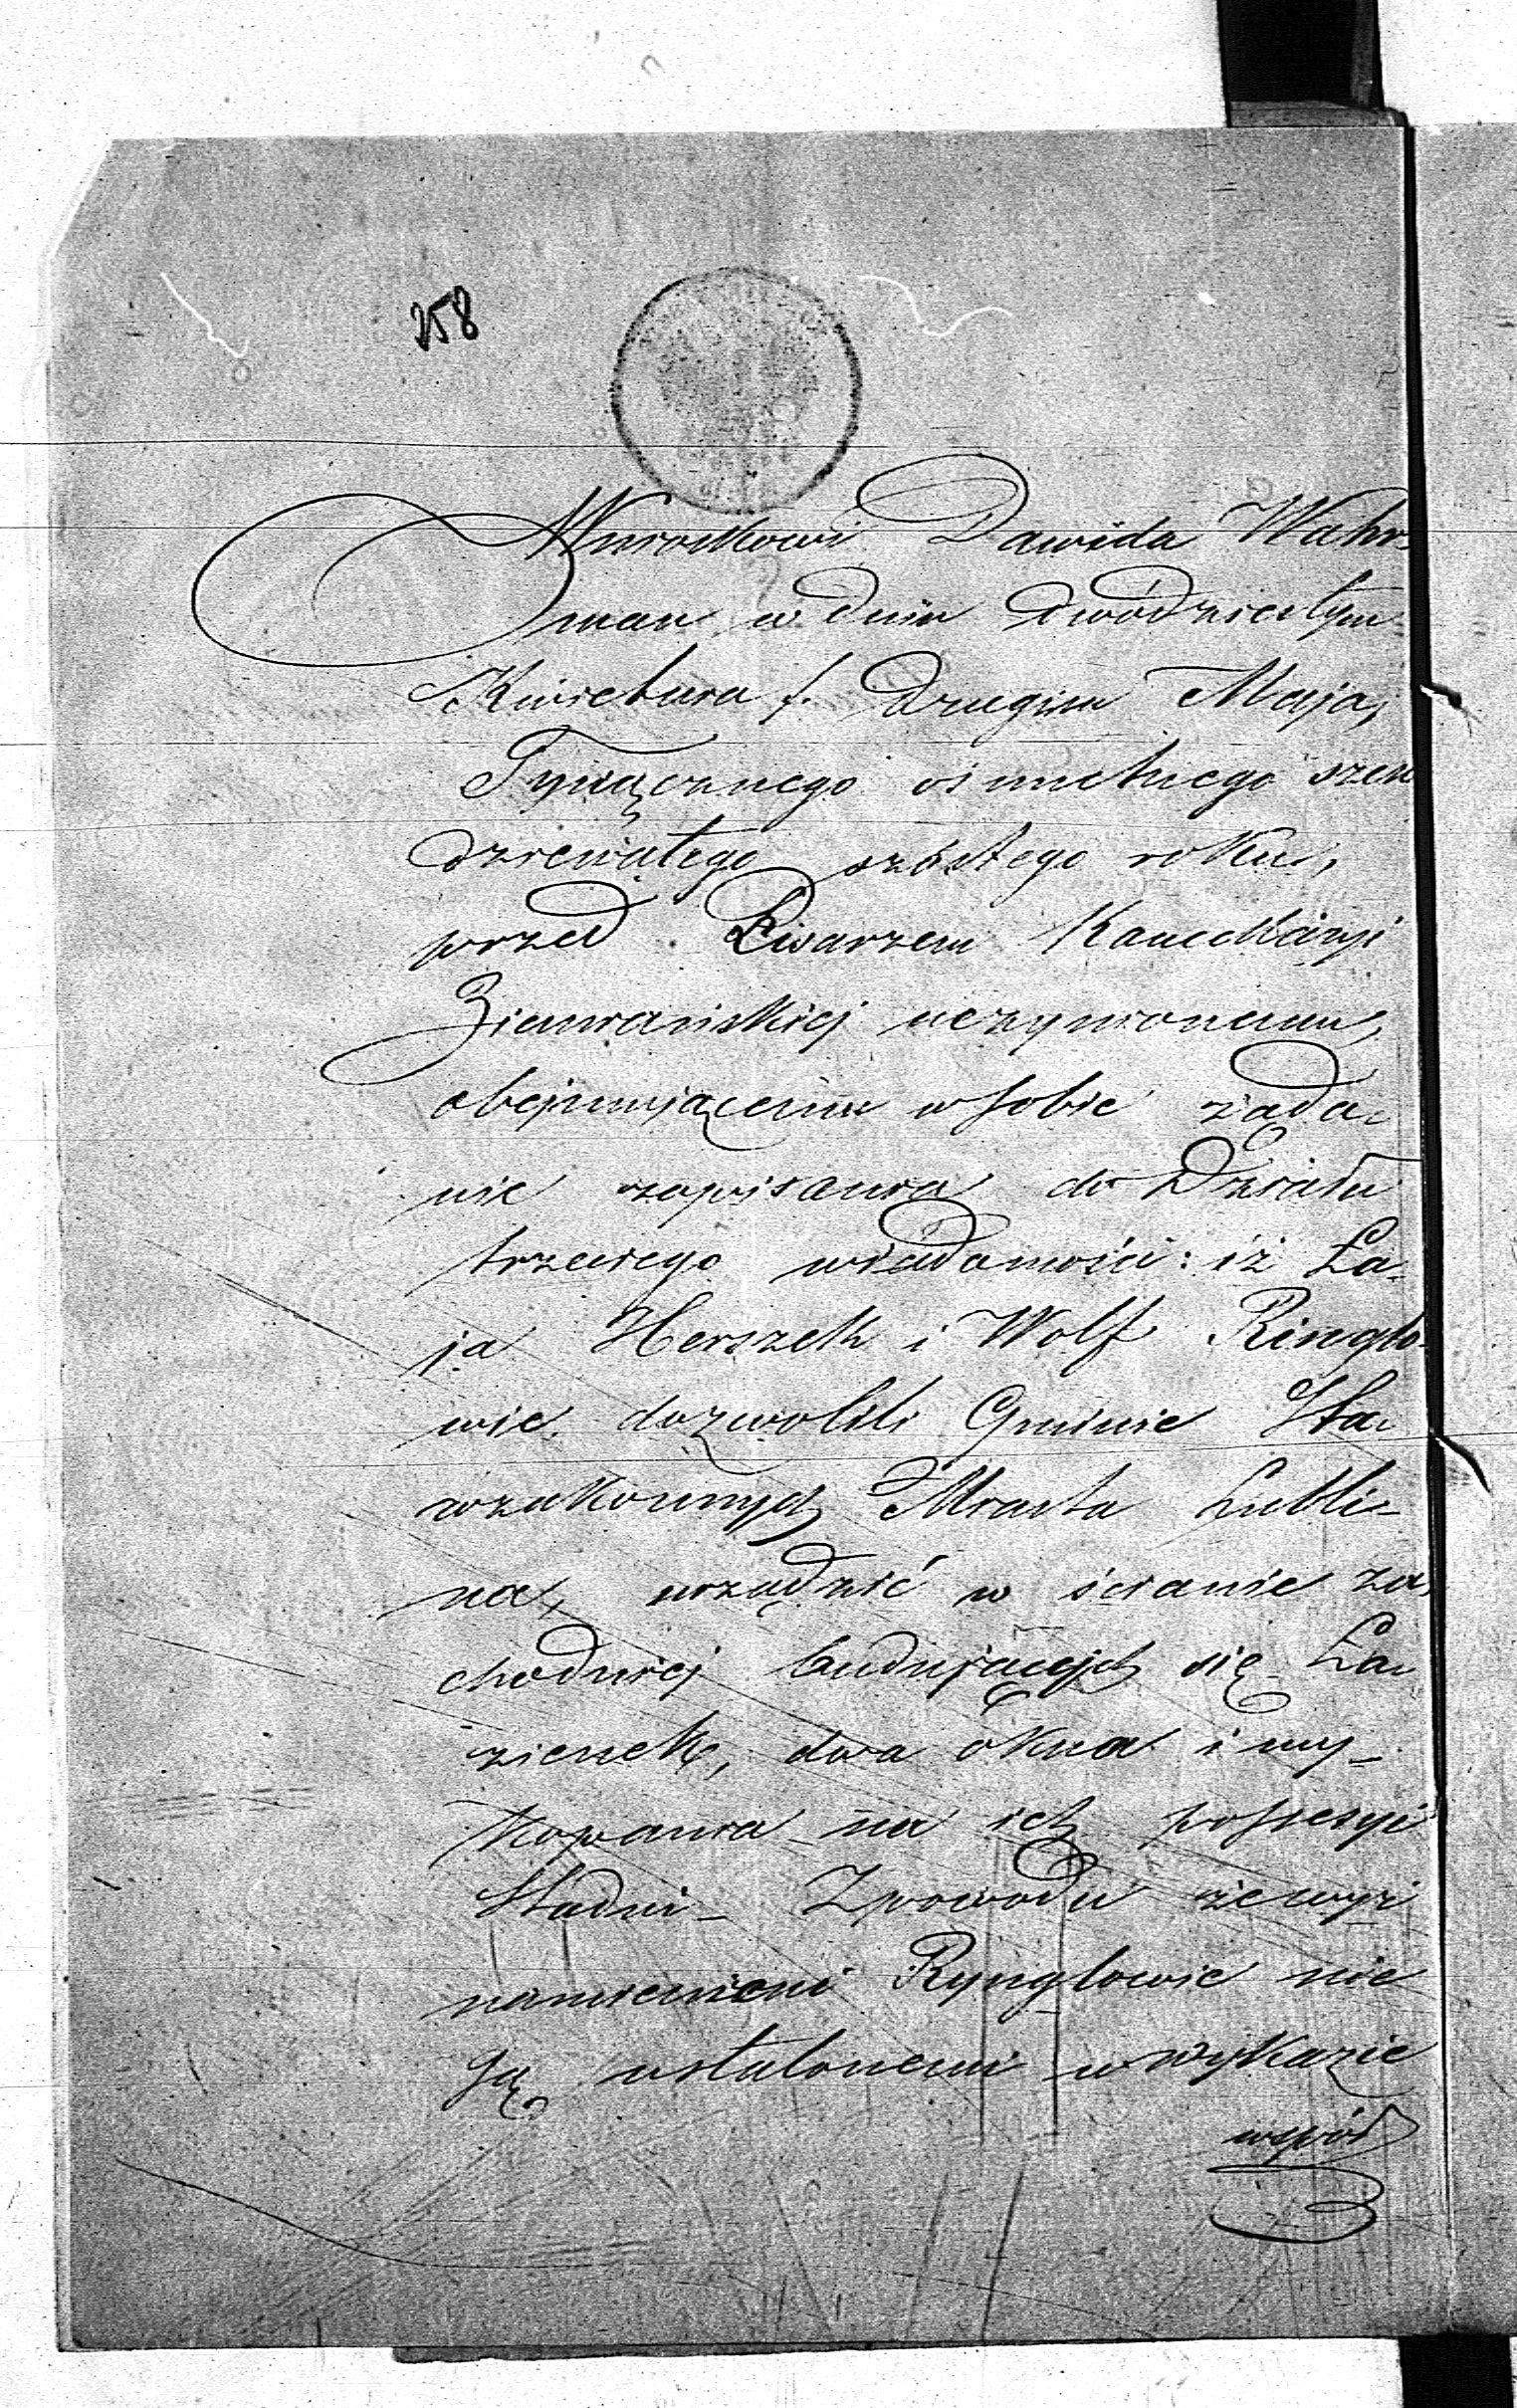 258
Wnioskowi Dawida Wahr-
man w dniu dwódziestym
Kwietnia /. drugim Maja,
Tysiącznego ośmsetnego sześ
dziesiątego szóstego roku,
przed Pisarzem Kancellaryi
Ziemiańskiej uczynionemu,
obejmującemu w sobie żąda-
nie zapisania do Działu
trzeciego wiadomości: iż Ła-
ja Herszek i Wolf Ringlo-
wie dozwolili Gminie Sta-
rozakonnych Miasta Lubli-
na, urządzić w ścianie za-
chodniej budujących się Ła-
zienek, dwa okna i wy-
kopania na ich possesyi
Studni_ Z powodu że wyż
namienieni Rynglowie nie
są ustalonemi w wykazie
wspód